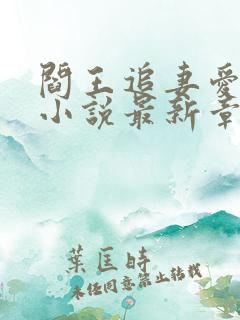 閻王追妻愛
小說最新章
葉匡時
未经同意禁止转载